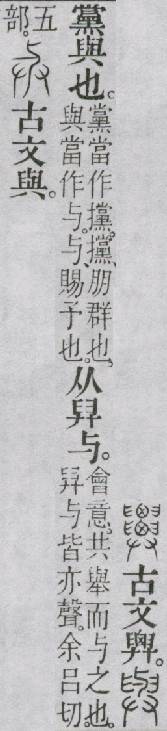 古文
黨與也。黨當作攩。攩、朋群也。與當作与。与、賜予也。从舁与。會意。共舉而与之也。舁与皆亦聲。余呂切。
五部。古文與。